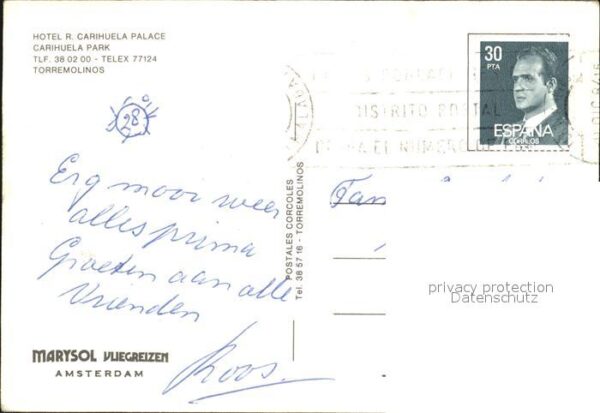 HOTEL R. CARIHUELA PALACE
CARIHUELA PARK
TLF. 38 02 00 - TELEX 77124
TORREMOLINOS
28
30
PTA
ESPAÑA
CORREOS
DISTRITO POSTAL
EL NUMERO
Erg mooi weer
alles prima
Groeten aan alle
Vrienden
Roos.
Fam
POSTALES CORCOLES
Tel. 38 57 16 - TORREMOLINOS
privacy protection
Datenschutz
MARYSOL VLIEGREIZEN
AMSTERDAM